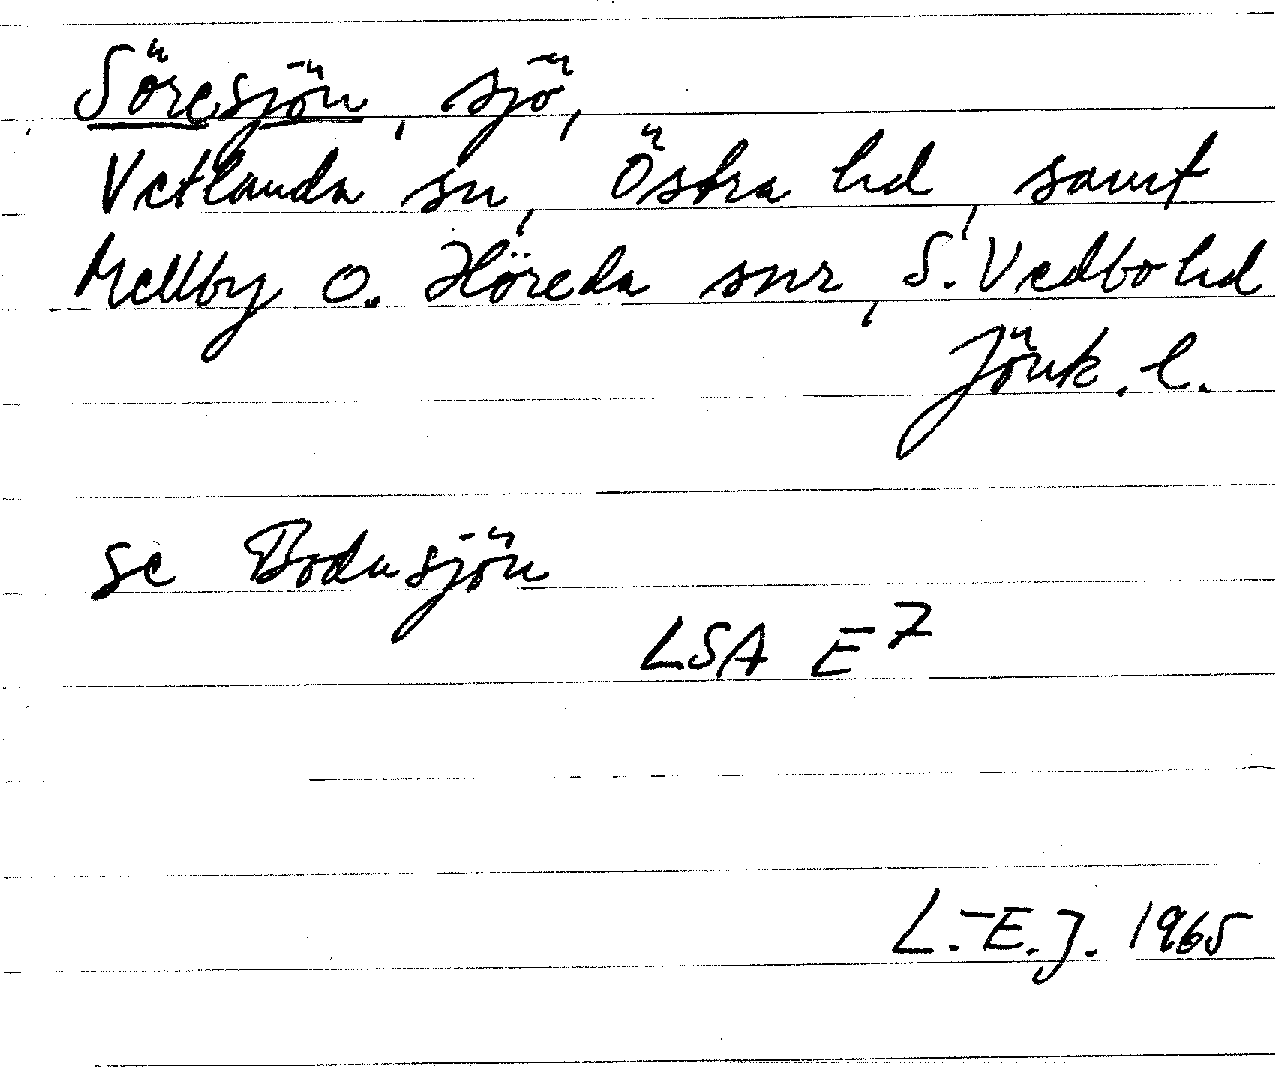 Söresjön, sjö,
Vetlanda sn, Östra hd, samt
Mellby o. Höreda snr, S. Vedbo hd
Jönk. l.
se Bodasjön
LSA E7
L.-E. J. 1965